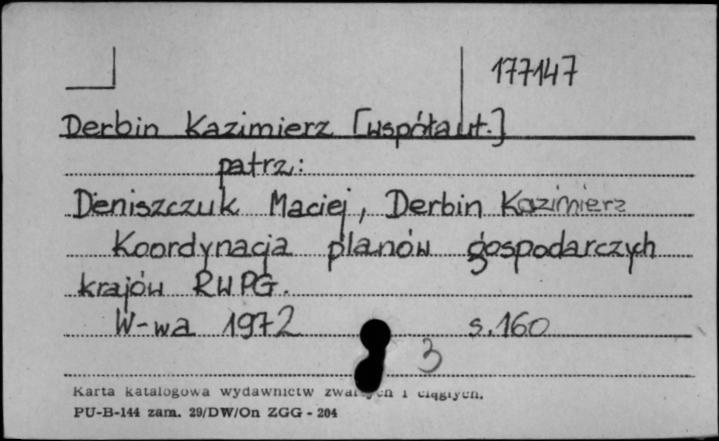 177147
Derbin Kazimierz [współaut.]
patrz:
Deniszczuk Maciej, Derbin Kazimierz
Koordynacja planów gospodarczych
krajów RWPG.
W-wa 1972 s.160
3
Karta katalogowa wydawnictw i ciągłych.
PU-B-144 zam. 29/DW/On ZGG - 204